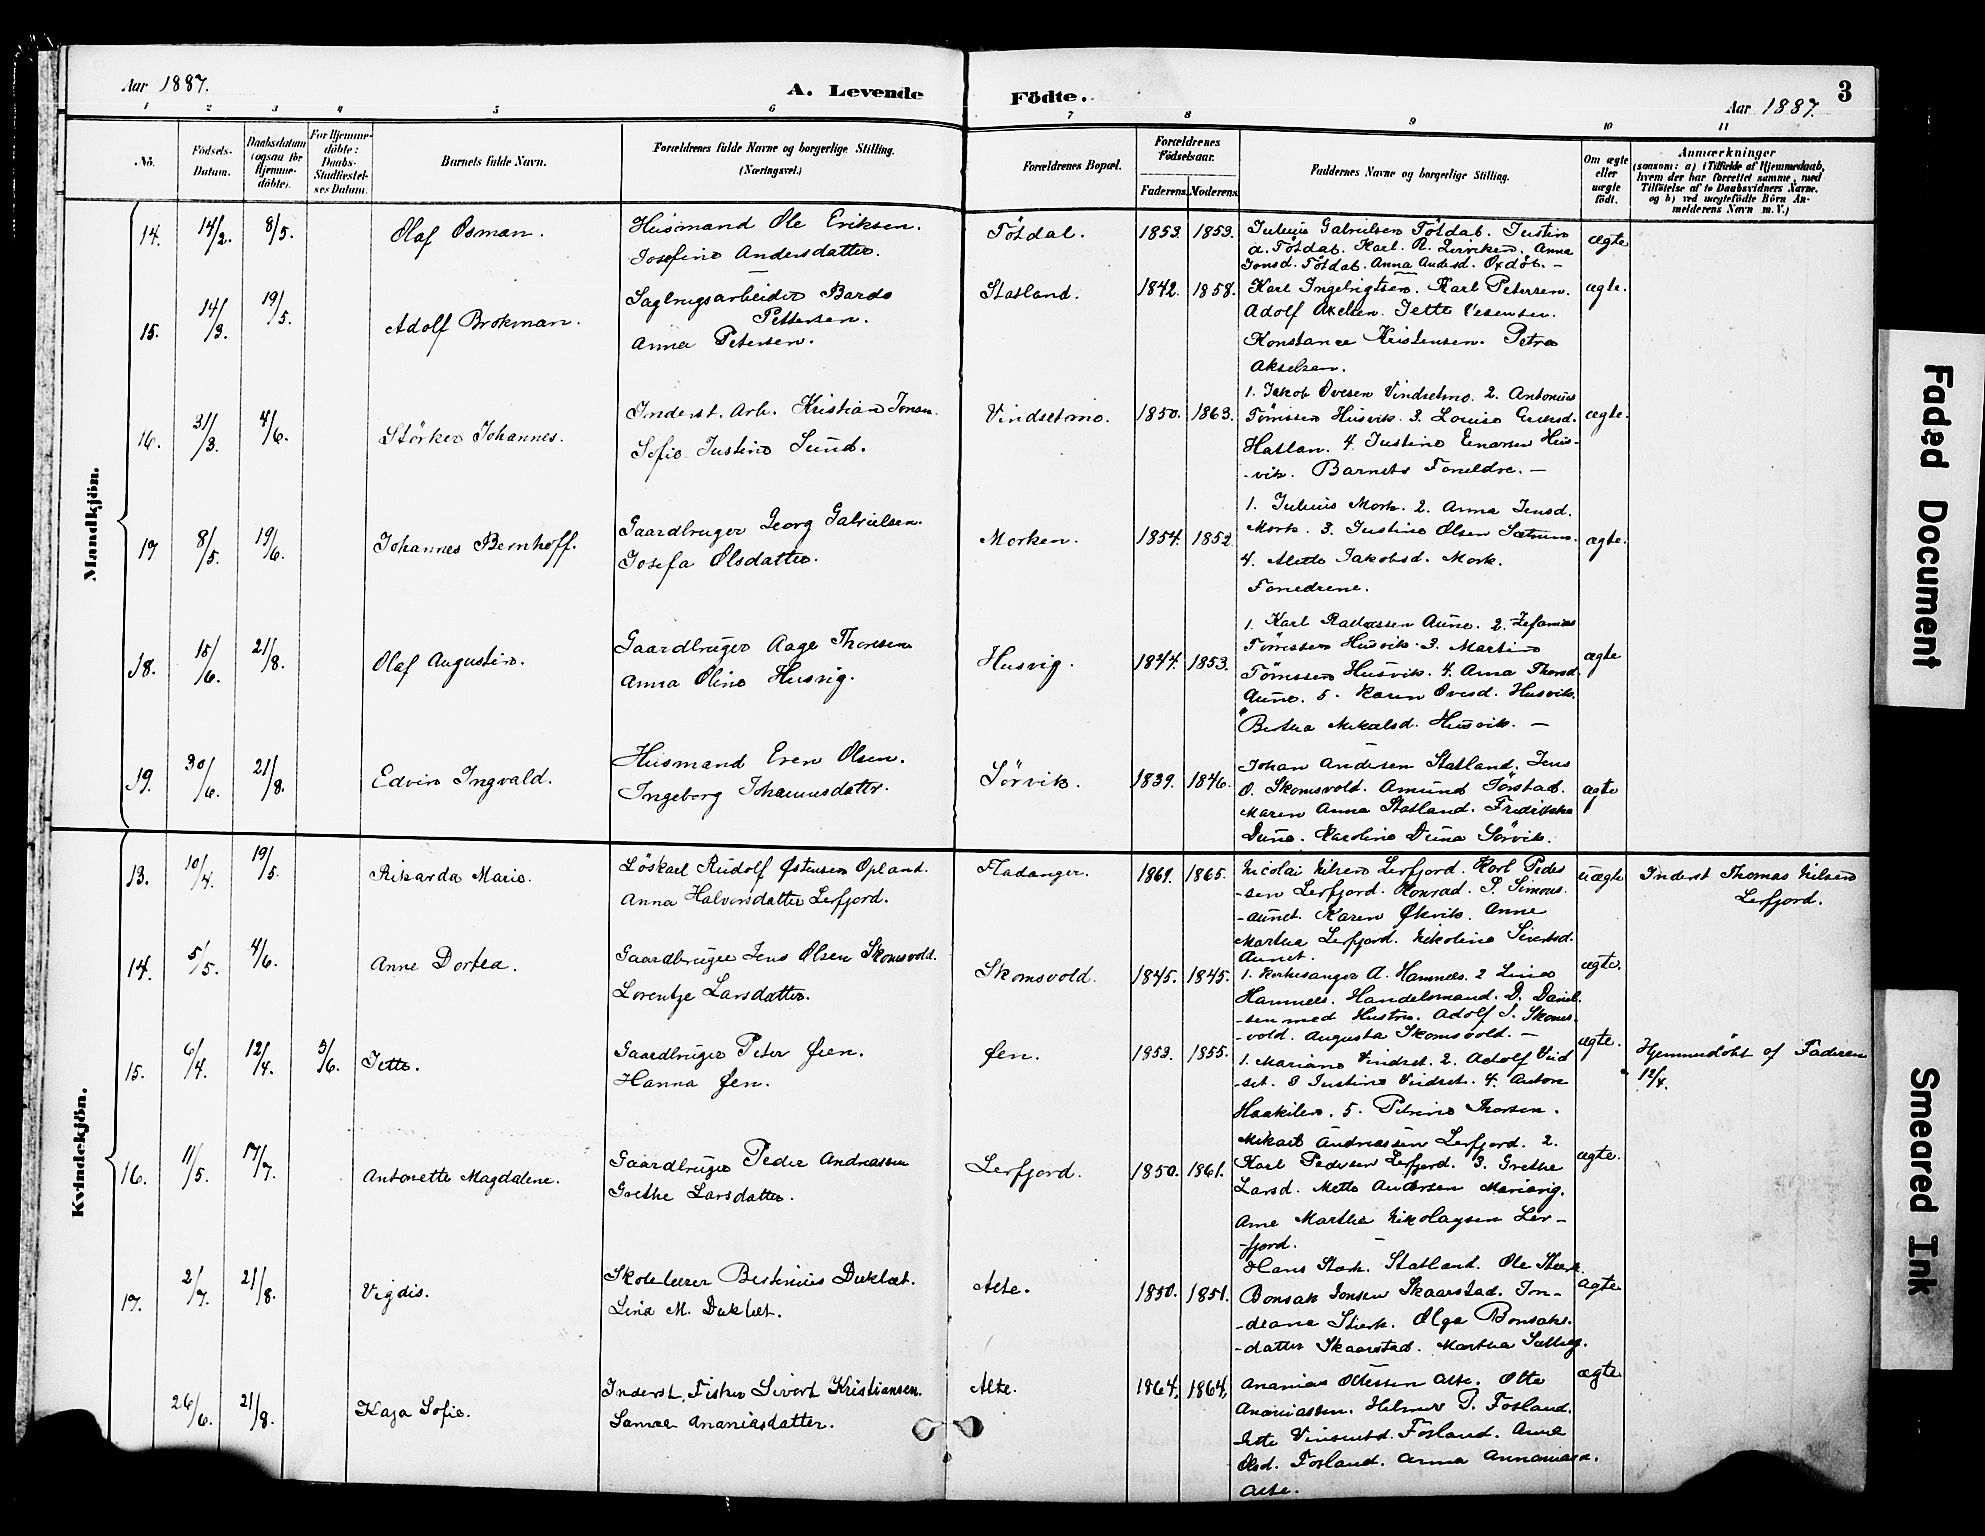 Aar 1887.
A. Levende Födte.
3
Aar 1887.
1 2 3 4 5 6 7 8 9 10 11
No.
Födsels-Datum.
Daabsdatum (ogsaa for Hjemme-döbte).
For Hjemme-döbte: Daabs-Stadfæstel-ses Datum.
Barnets fulde Navn.
Forældrenes fulde Navne og borgerlige Stilling. (Næringsvei.)
Forældrenes Bopæl.
Forældrenes Födselsaar.
Faderens. Moderens.
Faddernes Navne og borgerlige Stilling.
Om ægte eller uægte födt.
Anmærkninger
(saasom: a) i Tilfælde af Hjemmedaab, hvem der har forrettet samme, med Tilföielse af to Daabsvidners Navne, og b) ved uægtefödte Börn An-melderens Navn m. V.)
Mandkjön.
14. 14/2. 8/5. Olaf Osman.
Husmand Ole Eriksen.
Josefine Andersdatter.
Fösdal. 1853. 1853.
Julius Gabrielsen Fösdal. Justin
A. Fösdal. Karl A. Anna
Jonsd. Fösdal. Anna Andersd.
ægte
15. 14/3. 19/5. Adolf Brokman.
Sagbrugsarbeider Bardo
Pettersen.
Anna Petersen.
Statland. 1842. 1858.
Karl Ingebrigtsen. Karl Petersen.
Adolf Axelsen. Jette
Konstance Kristensen. Petra
Akselsen.
ægte.
16. 31/3. 4/6. Störker Johannes.
Inderst. Arb. Kristian Jonsen.
Sofie Justine Sund.
Vindsetmo. 1850. 1863.
1. Jakob Ovesen Vindsetmo. 2. Antonius
Tørrissen Husvik. 3. Louise Eriksd.
Haslan. 4. Justine Husvik. Barnets Foreldre. —
ægte.
17 8/5. 19/6. Johannes Bernhoff.
Gaardbruger Georg Gabrielsen.
Josefa Olsdatter.
Morken. 1854. 1852
1. Julius Mork. 2. Anna Jensd.
Mork. 3. Justine Olsen
4. Jakobsd. Mork.
ægte.
18. 15/6. 21/8. Olaf Augustin.
Gaardbruger Aage Thoresen
Anna Oline Husvig.
Husvig. 1844. 1853.
1. Karl Aune. 2. Zefanias
Tørrissen Husvik. 3. Martin
Tørrissen Husvik. 4. Anna Thorsd.
Aune. 5. Karen Ovesd. Husvik.
Berthea Mikalsd. Husvik. —
ægte
19. 30/6. 21/8. Edvin Ingvald.
Husmand Even Olsen.
Ingeborg Johannesdatter.
Sörvik. 1839. 1846.
Johan Andersen Statland. Jens
O. Skomsvold. Amund
Maren Anna Statland. Fredrikke
Duna. Karoline Duna Sörvik.
ægte
Kvindekjön.
13. 10/4. 19/5. Rikarda Marie.
Löskarl Rudolf Østensen Opland.
Anna Halvorsdatter Lerfjord.
Fladanger. 1861. 1865.
Nicolai Nilsen Lerfjord. Karl Peder
-sen Lerfjord. Konrad S. Simons
-aunet. Karen Økvik. Anne
Martha Lerfjord. Nikoline Sivertsd.
Aunet.
uægte
Inderst Thomas Nilsen
Lerfjord.
14. 5/5. 4/6. Anne Dortea.
Gaardbruger Jens Olsen Skomsvold.
Lorentze Larsdatter.
Skomsvold. 1845. 1845.
1. Kirkesanger A. Hammer. 2 Lina
Hammer. Handelsmand. D. Daniel
-sen med Hustru. Adolf J. Skoms-
-vold. Augusta Skomsvold. —
ægte.
15. 6/4. 12/4. 5/6. Jette.
Gaardbruger Peter Øien.
Hanna Øen.
Øen. 1853. 1855.
1. Mariane Vindset. 2. Adolf Vind
-set. 3 Justine Vindset. 4. Anton
5. Petrine Thorsen.
ægte.
Hjemmedöbt af Faderen
12/4.
16. 11/5. 17/7. Antonette Magdalene.
Gaardbruger Peder Andreassen
Grethe Larsdatter.
Lerfjord. 1850. 1861.
Mikael Andreassen Lerfjord. 2.
Karl Pedersen Lerfjord. 3. Grethe
Larsd. Mette Andersen
Anne Martha Nikolaysen Ler-
-fjord.
ægte.
17. 2/7. 21/8. Vigdis.
Skolelærer Bertinius Duklæt.
Lina M. Duklæt.
Alte. 1850. 1851.
Hans Stærk. Statland. Ole Stærk.
Bonsak Jonsen Skaarstad. Jon-
-deane Stærk. Olga Bonsaks-
-datter Skaarstad. Martha
ægte
26/6. 21/8. Kaja Sofie.
Inderst, Fisker Sivert Kristiansen.
Ananiasdatter.
Alte. 1864. 1864.
Ananias Ottessen Alte. Otte
Ananiassen. Helmer P. Fosland.
Jette Vinsentsd. Fosland. Anne
Olsd. Fosland. Anna Annaniasd.
Alte.
ægte
Faded Document
Smeared Ink